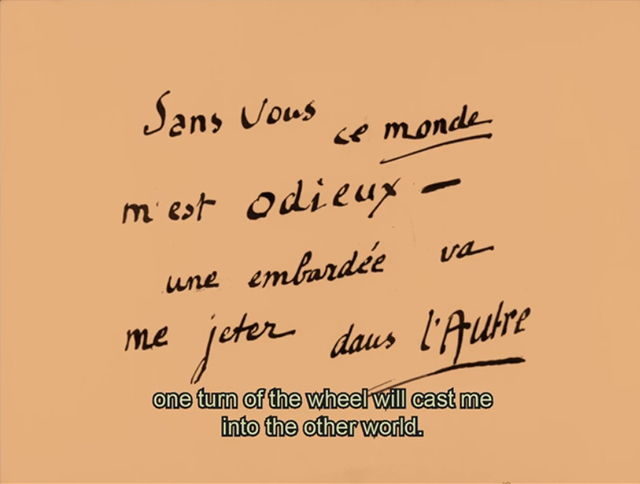 Sans Vous ce monde
m'est odieux —
une embardée va
me jeter dans l'Autre
one turn of the wheel will cast me
into the other world.